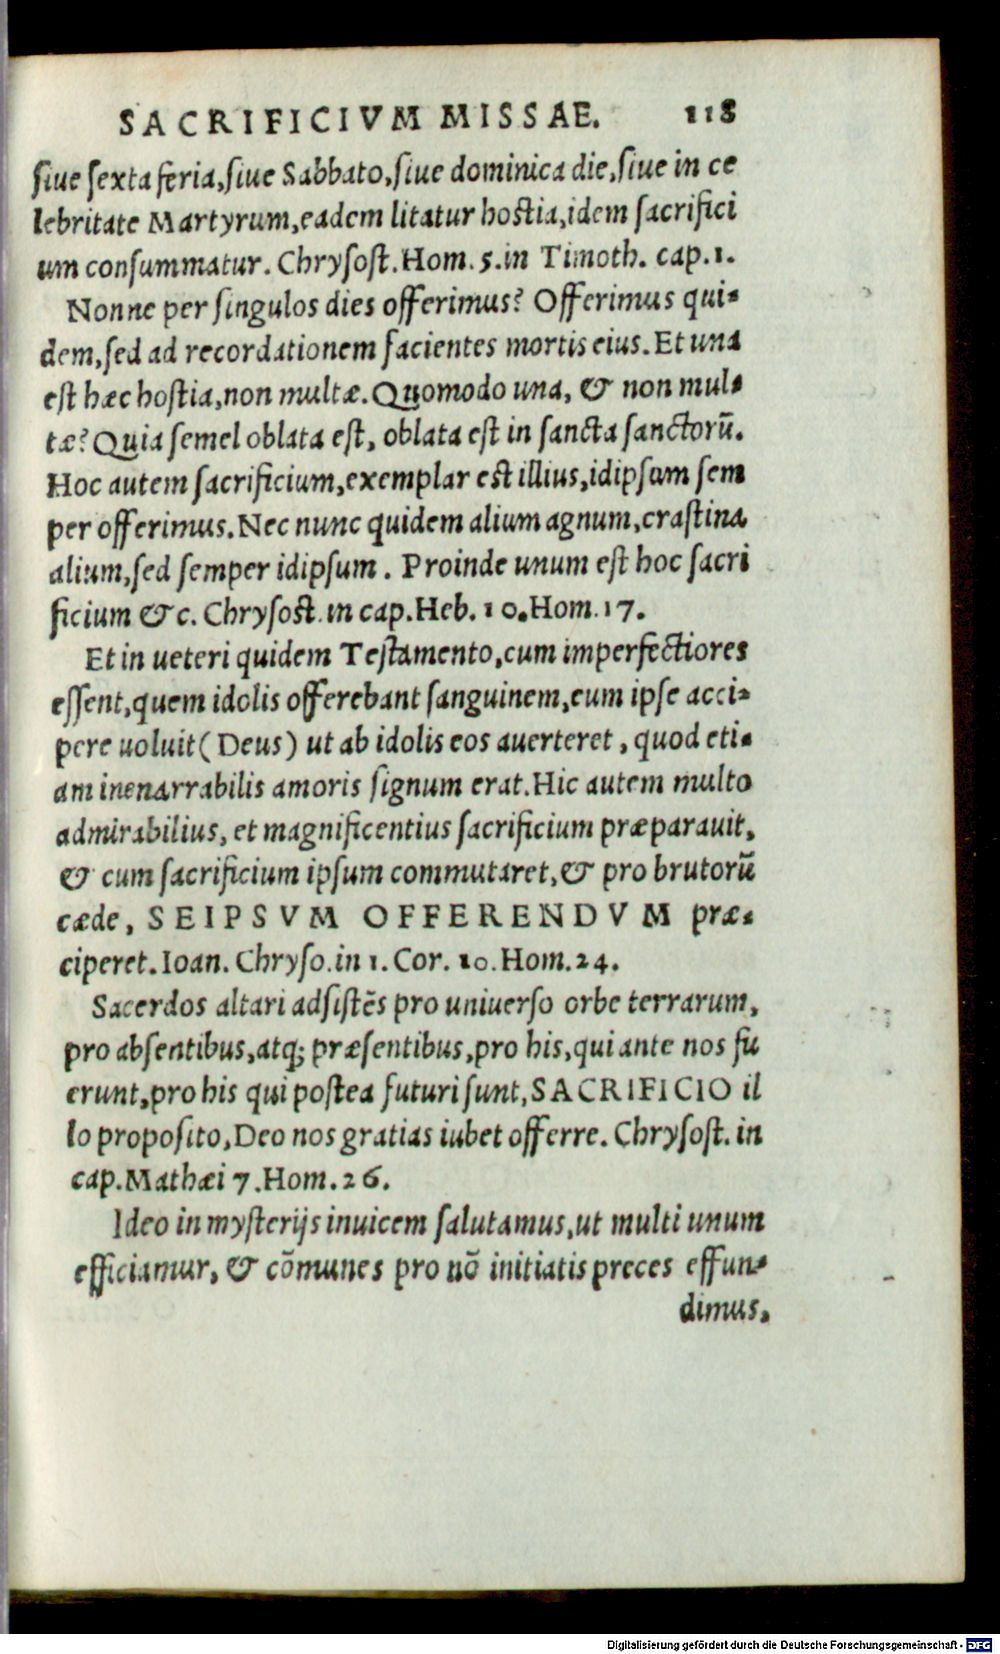 SACRIFICIVM MISSAE. 118
siue sexta feria, siue Sabbato, siue dominica die, siue in ce
lebritate Martyrum, eadem litatur hostia, idem sacrifici
um consummatur. Chrysost. Hom. 5. in Timoth. cap. 1.
Nonne per singulos dies offerimus? Offerimus qui-
dem, sed ad recordationem facientes mortis eius. Et una
est hæc hostia, non multæ. Quomodo una, & non mul-
tæ? Quia semel oblata est, oblata est in sancta sanctorū.
Hoc autem sacrificium, exemplar est illius, idipsum sem
per offerimus. Nec nunc quidem alium agnum, crastina
alium, sed semper idipsum. Proinde unum est hoc sacri
ficium &c. Chrysost. in cap. Heb. 10. Hom. 17.
Et in ueteri quidem Testamento, cum imperfectiores
essent, quem idolis offerebant sanguinem, eum ipse acci-
pere uoluit (Deus) ut ab idolis eos auerteret, quod eti-
am inenarrabilis amoris signum erat. Hic autem multo
admirabilius, et magnificentius sacrificium præparauit,
& cum sacrificium ipsum commutaret, & pro brutorū
cæde, SEIPSVM OFFERENDVM præ-
ciperet. Ioan. Chryso. in 1. Cor. 10. Hom. 24.
Sacerdos altari adsistēs pro uniuerso orbe terrarum,
pro absentibus, atq; præsentibus, pro his, qui ante nos fu
erunt, pro his qui postea futuri sunt, SACRIFICIO il
lo proposito, Deo nos gratias iubet offerre. Chrysost. in
cap. Mathæi 7. Hom. 26.
Ideo in mysterijs inuicem salutamus, ut multi unum
efficiamur, & cōmunes pro nō initiatis preces effun-
dimus,
Digitalisierung gefördert durch die Deutsche Forschungsgemeinschaft - DFG